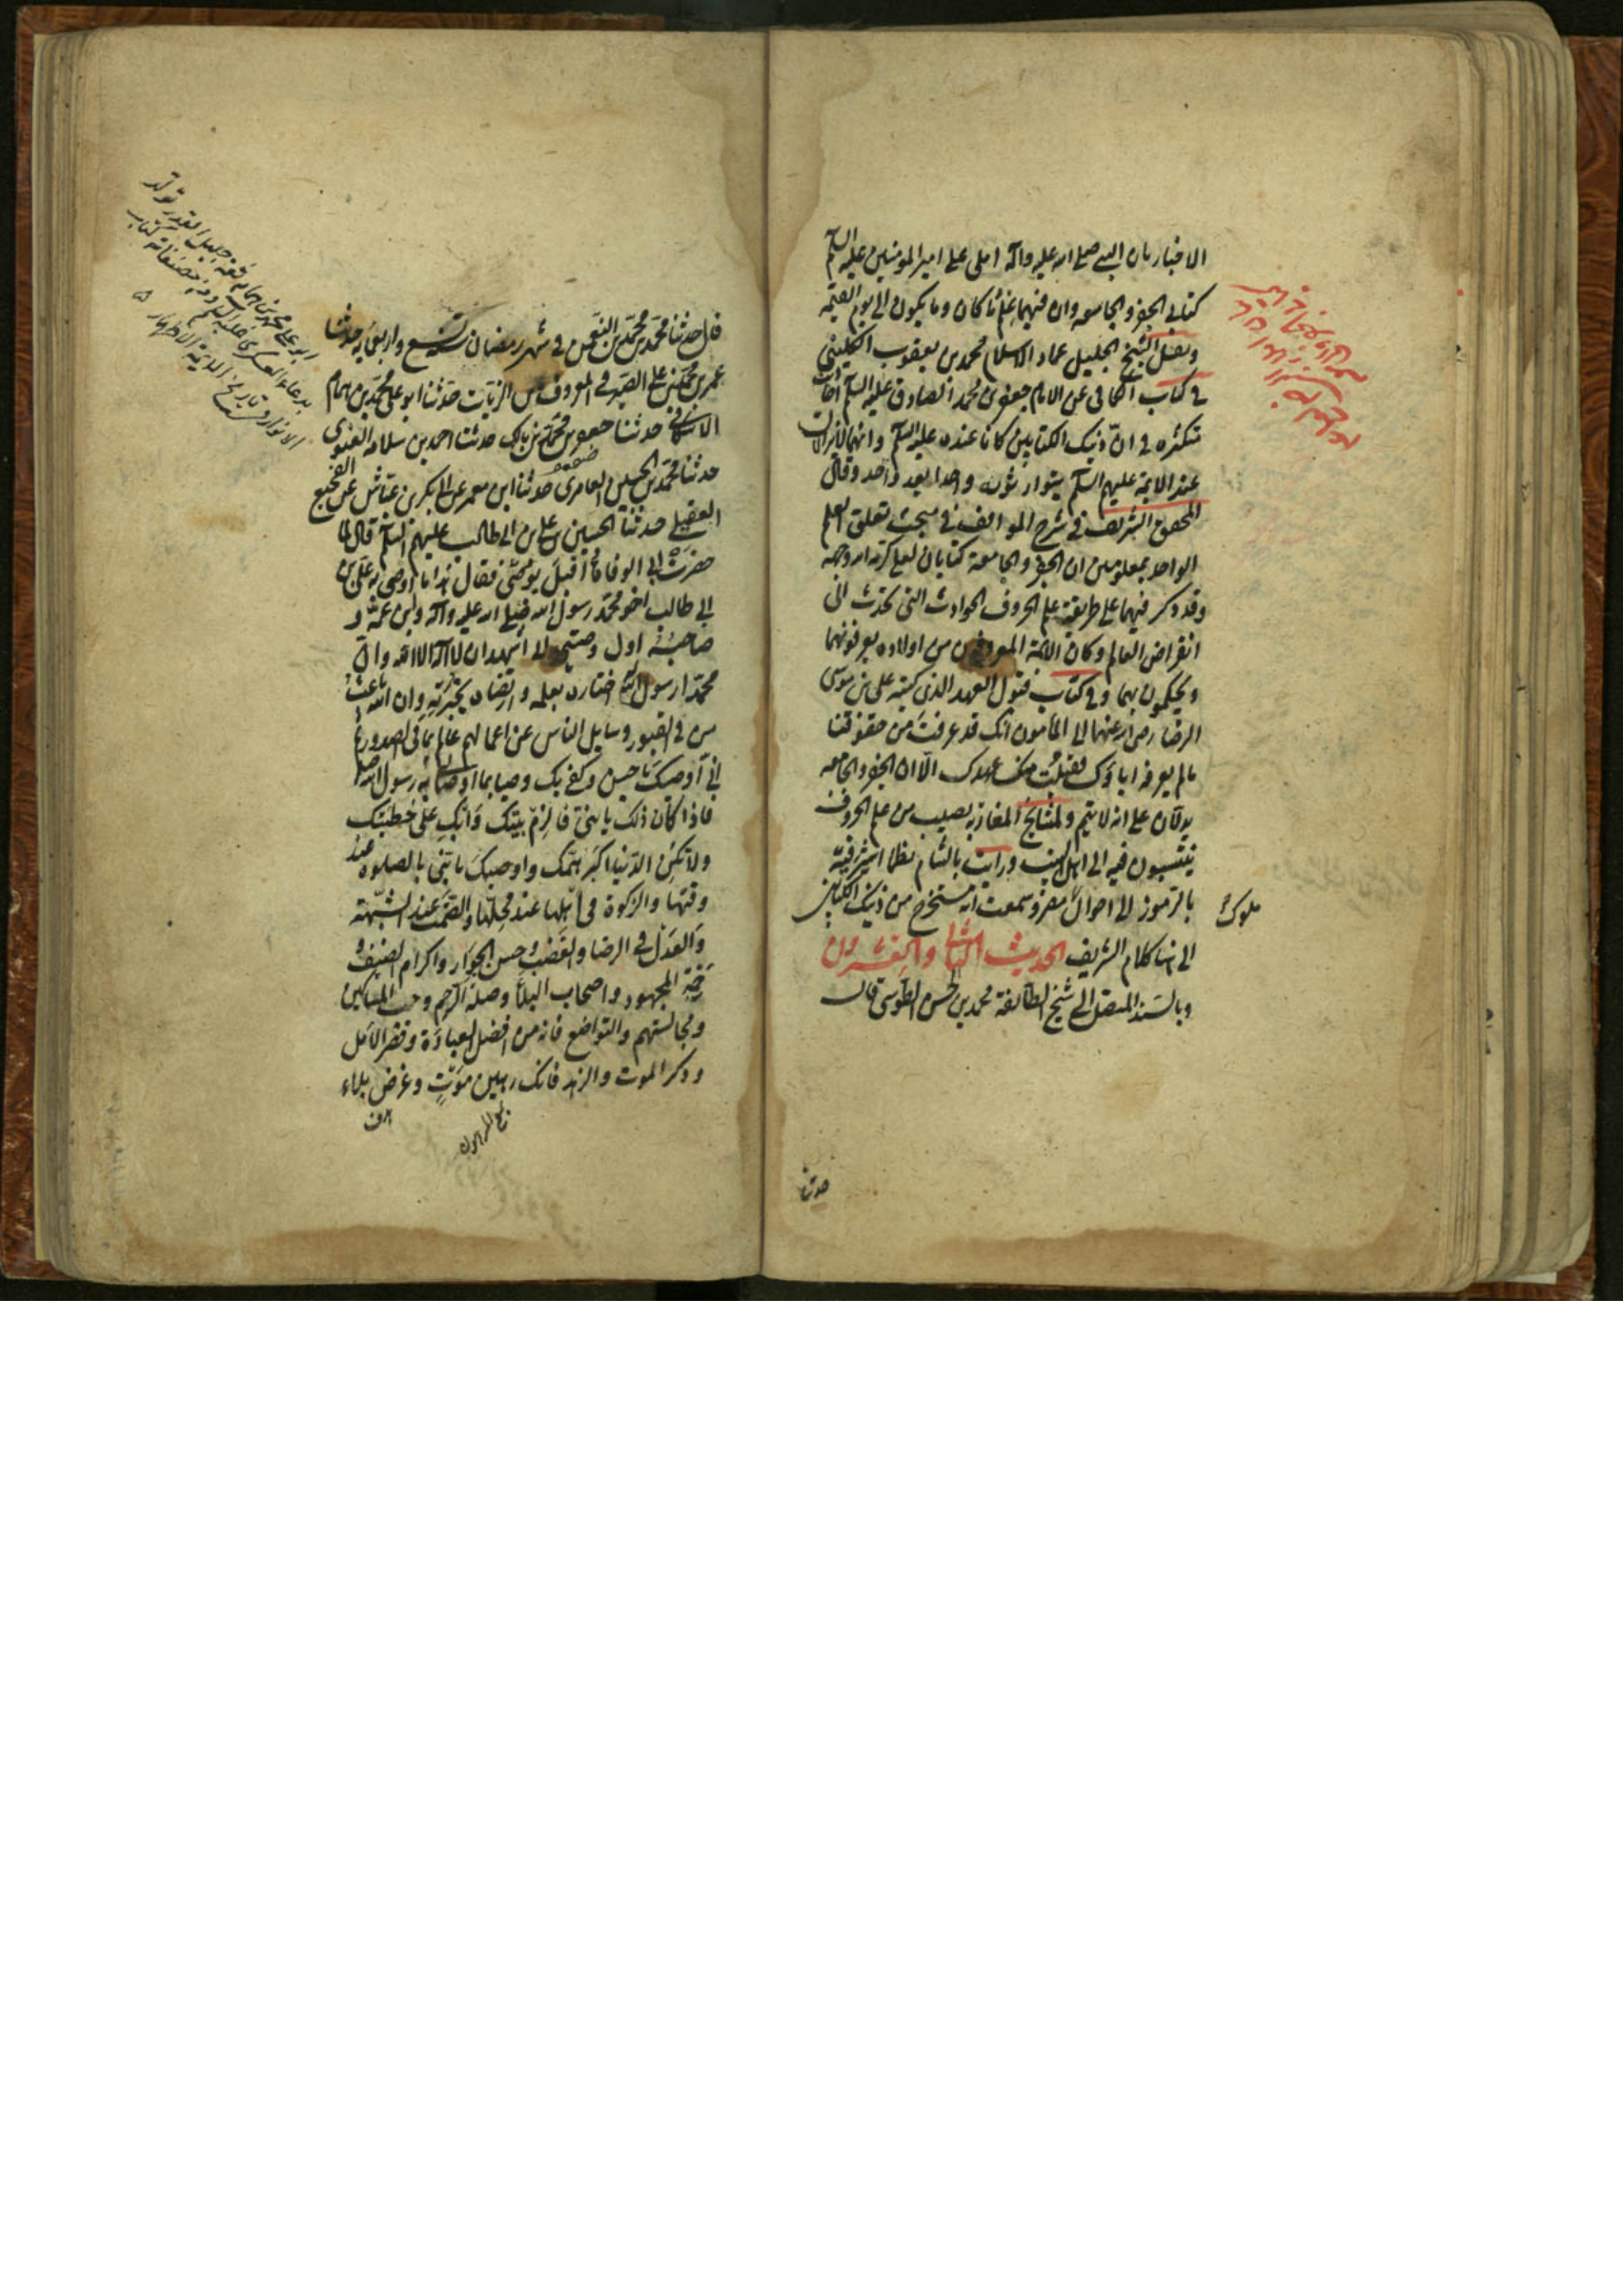 الاخبار بان النبي صلى الله عليه وآله املى على امير المؤمنين عليه السلم
كتابى الجفر والجامعه وان فيهما علم ما كان وما يكون الى يوم القيمة
ونقل الشيخ الجليل عماد الاسلام محمد بن يعقوب الكلينى
فى كتاب الكافى عن الامام جعفر بن محمد الصادق عليه السلم احاديث
متكثره فى ان ذينك الكتابين كانا عنده عليه السلم وانهما لا يزالان
عند الايمة عليهم السلم يتوارثونه واحدا بعد واحد وقال
المحقق الشريف فى شرح المواقف فى مبحث تعلق العلم
الواحد بمعلومين ان الجفر والجامعة كتابان لعلى كرم الله وجهه
وقد ذكر فيهما على طريقة علم الحروف الحوادث التى تحدث الى
انقراض العالم وكان الائمة المعروفون من اولاده يعرفونهما
ويحكمون بهما وفى كتاب قبول العهد الذى كتبه على بن موسى
الرضا رضى الله عنهما الى المأمون انك قد عرفت من حقوقنا
ما لم يعرفه اباؤك فقبلت منك عهدك الا ان الجفر والجامعه
يدلان على انه لا يتم ولمشايخ المغاربه نصيب من علم الحروف
ينتسبون فيه الى اهل البيت ورايت بالشام نظما اشير فيه
بالرموز الى احوال مصر وسمعت انه مستخرج من ذينك الكتابين
ملوك
الى هنا كلام الشريف الحديث الثانى والعشرون
وبالسند المتصل الى شيخ الطائفة محمد بن الحسن الطوسى قال
حدثنا
قال حدثنا محمد بن محمد بن النعمن فى شهر رمضان سنة تسع واربعمايه حدثنا
عمر بن محمد بن على الصيرفى المعروف بابن الزيات حدثنا ابو على محمد بن همام
الاسكافى حدثنا جعفر بن محمد بن مالك حدثنا احمد بن سلامه الغنوى
حدثنا محمد بن الحسين العامرى حدثنا ابن معمر عن ابى بكر بن عياش عن الفجيع
العقيلى حدثنا الحسين بن على بن ابى طالب عليهم السلم قال لما
حضرت ابى الوفاة أقبل يوصى فقال هذا ما أوصى به على بن
ابى طالب اخو محمد رسول الله صلى الله عليه وآله وابن عمه و
صاحبه اول وصيتى انى اشهد ان لا اله الا الله وان
محمدا رسوله اختاره بعلمه وارتضاه بخيرته وان الله باعث
من فى القبور وسايل الناس عن اعمالهم عالم بما فى الصدور ثم
انى أوصيك يا حسن وكفى بك وصيا بما اوصانى به رسول الله
فاذا كان ذلك يا بنى فالزم بيتك وابك على خطيئتك
ولا تكن الدنيا اكبر همك واوصيك يا بنى بالصلوة عند
وقتها والزكوة فى أهلها عند محلها والصمت عند الشبهة
والعدل فى الرضا والغضب وحسن الجوار واكرام الضيف و
رحمة المجهود واصحاب البلاء وصلة الرحم وحب المساكين
ومجالستهم والتواضع فانه من افضل العبادة وقصر الأمل
وذكر الموت والزهد فانك رهين موت وغرض بلاء
ابو على محمد بن همام ثقة جليل القدر تولد
بدعاء العسكرى عليه السلم ومن مصنفاته كتاب
الانوار فى تاريخ الايمة الاطهار